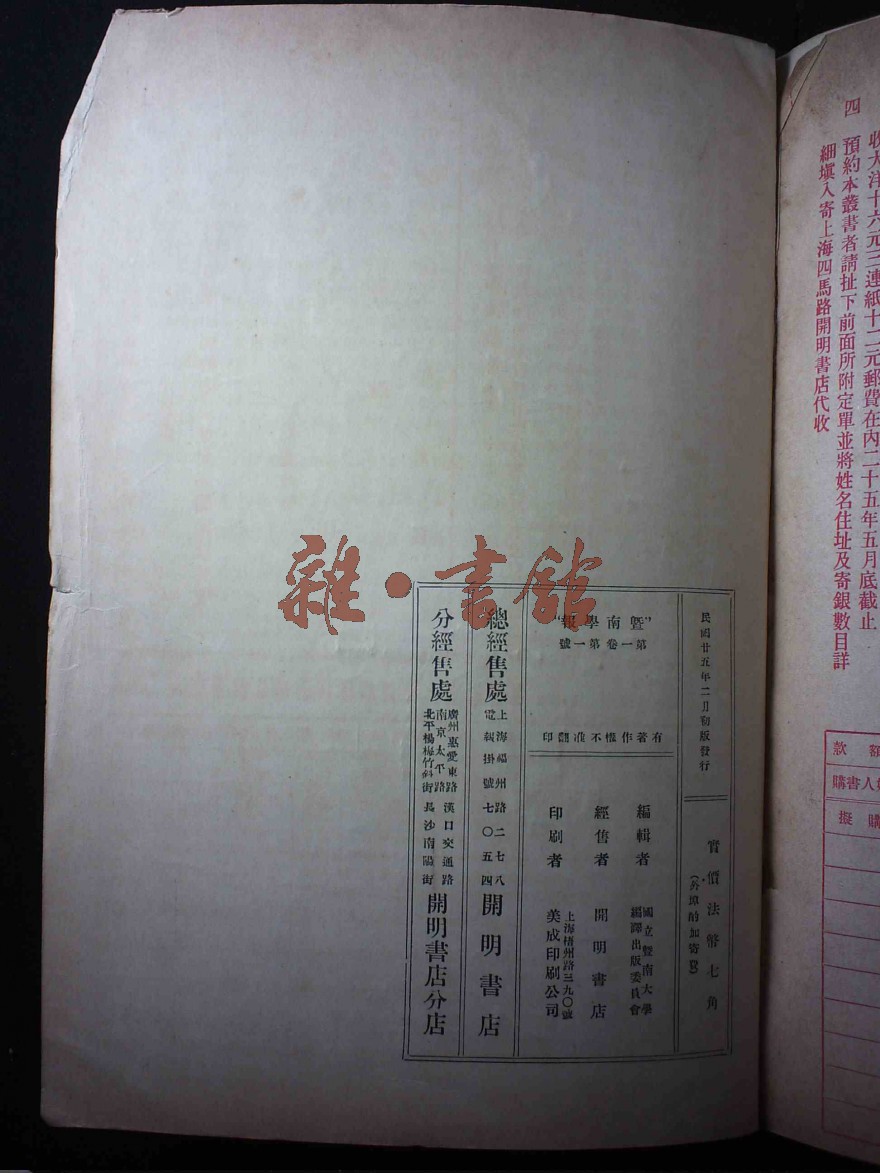 四
收大洋十六元三連紙十二元郵費在內二十五年五月底截止
預約本叢書者請扯下前面所附定單並將姓名住址及寄銀數目詳
細塡入寄上海四馬路開明書店代收
款額
購書人姓
擬購
民國廿五年二月初版發行
實價法幣七角
(外埠酌加寄費)
“暨南學報”
第一卷第一號
有著作權不准翻印
編輯者
國立暨南大學
編譯出版委員會
經售者
開明書店
印刷者
上海梧州路三九〇號
美成印刷公司
總經售處
上海福州路二七八
電報掛號七〇五四
開明書店
分經售處
廣州惠愛東路
南京太平路
北平楊梅竹斜街
漢口交通路
長沙南陽街
開明書店分店
雜·書館